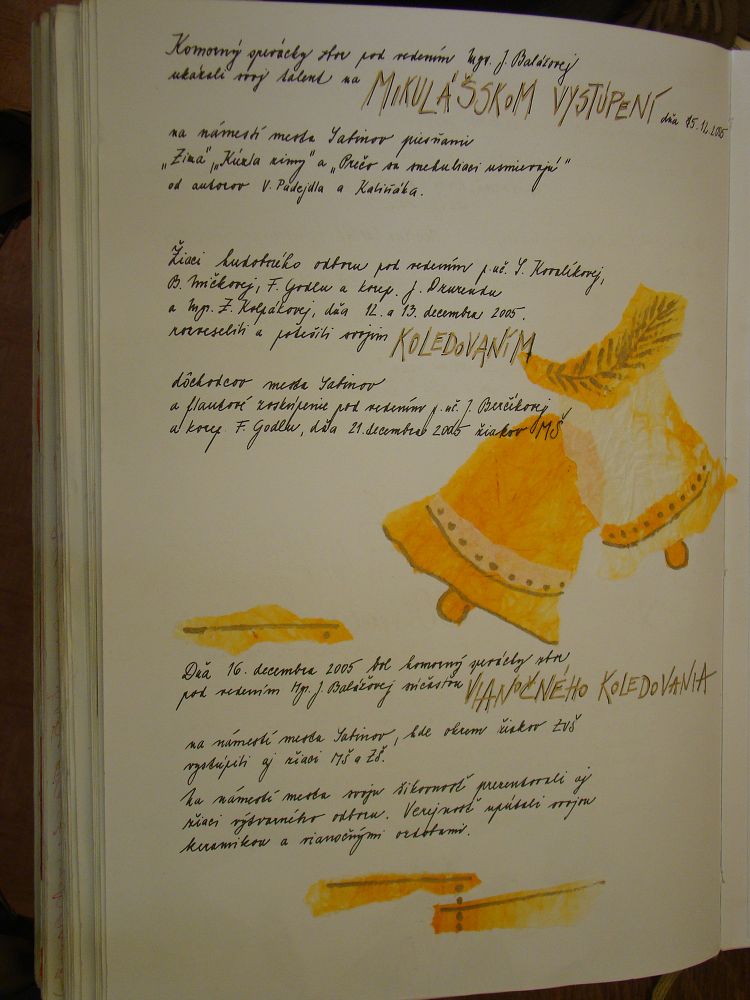 Komorný spevácky zbor pod vedením Mgr. J. Balážovej
ukázali svoj talent na MIKULÁŠSKOM VYSTÚPENÍ dňa 05.12.2005
na námestí mesta Sabinov piesňami
„Zima", „Kúzla zimy" a „Prečo sa snehuliaci usmievajú"
od autorov V. Padejdla a Kaliňáka.
Žiaci hudobného odboru pod vedením p. uč. S. Kovalíkovej,
B. Mičkovej, F. Godlu a korep. J.
a Mgr. Z. Kolpákovej, dňa 12. a 13. decembra 2005.
rozveselili a potešili svojim KOLEDOVANÍM
dôchodcov mesta Sabinov
a flautové zoskúpenie pod vedením p. uč. J. Berčíkovej
a korep. F. Godlu, dňa 21. decembra 2005 žiakov MŠ
Dňa 16. decembra 2005 bol komorný spevácky zbor
pod vedením Mgr. J. Balážovej súčasťou VIANOČNÉHO KOLEDOVANIA
na námestí mesta Sabinov, kde okrem žiakov ZUŠ
vystúpili aj žiaci MŠ a ZŠ.
Na námestí mesta svoju šikovnosť prezentovali aj
žiaci výtvarného odboru. Verejnosť upútali svojou
keramikou a vianočnými ozdobami.